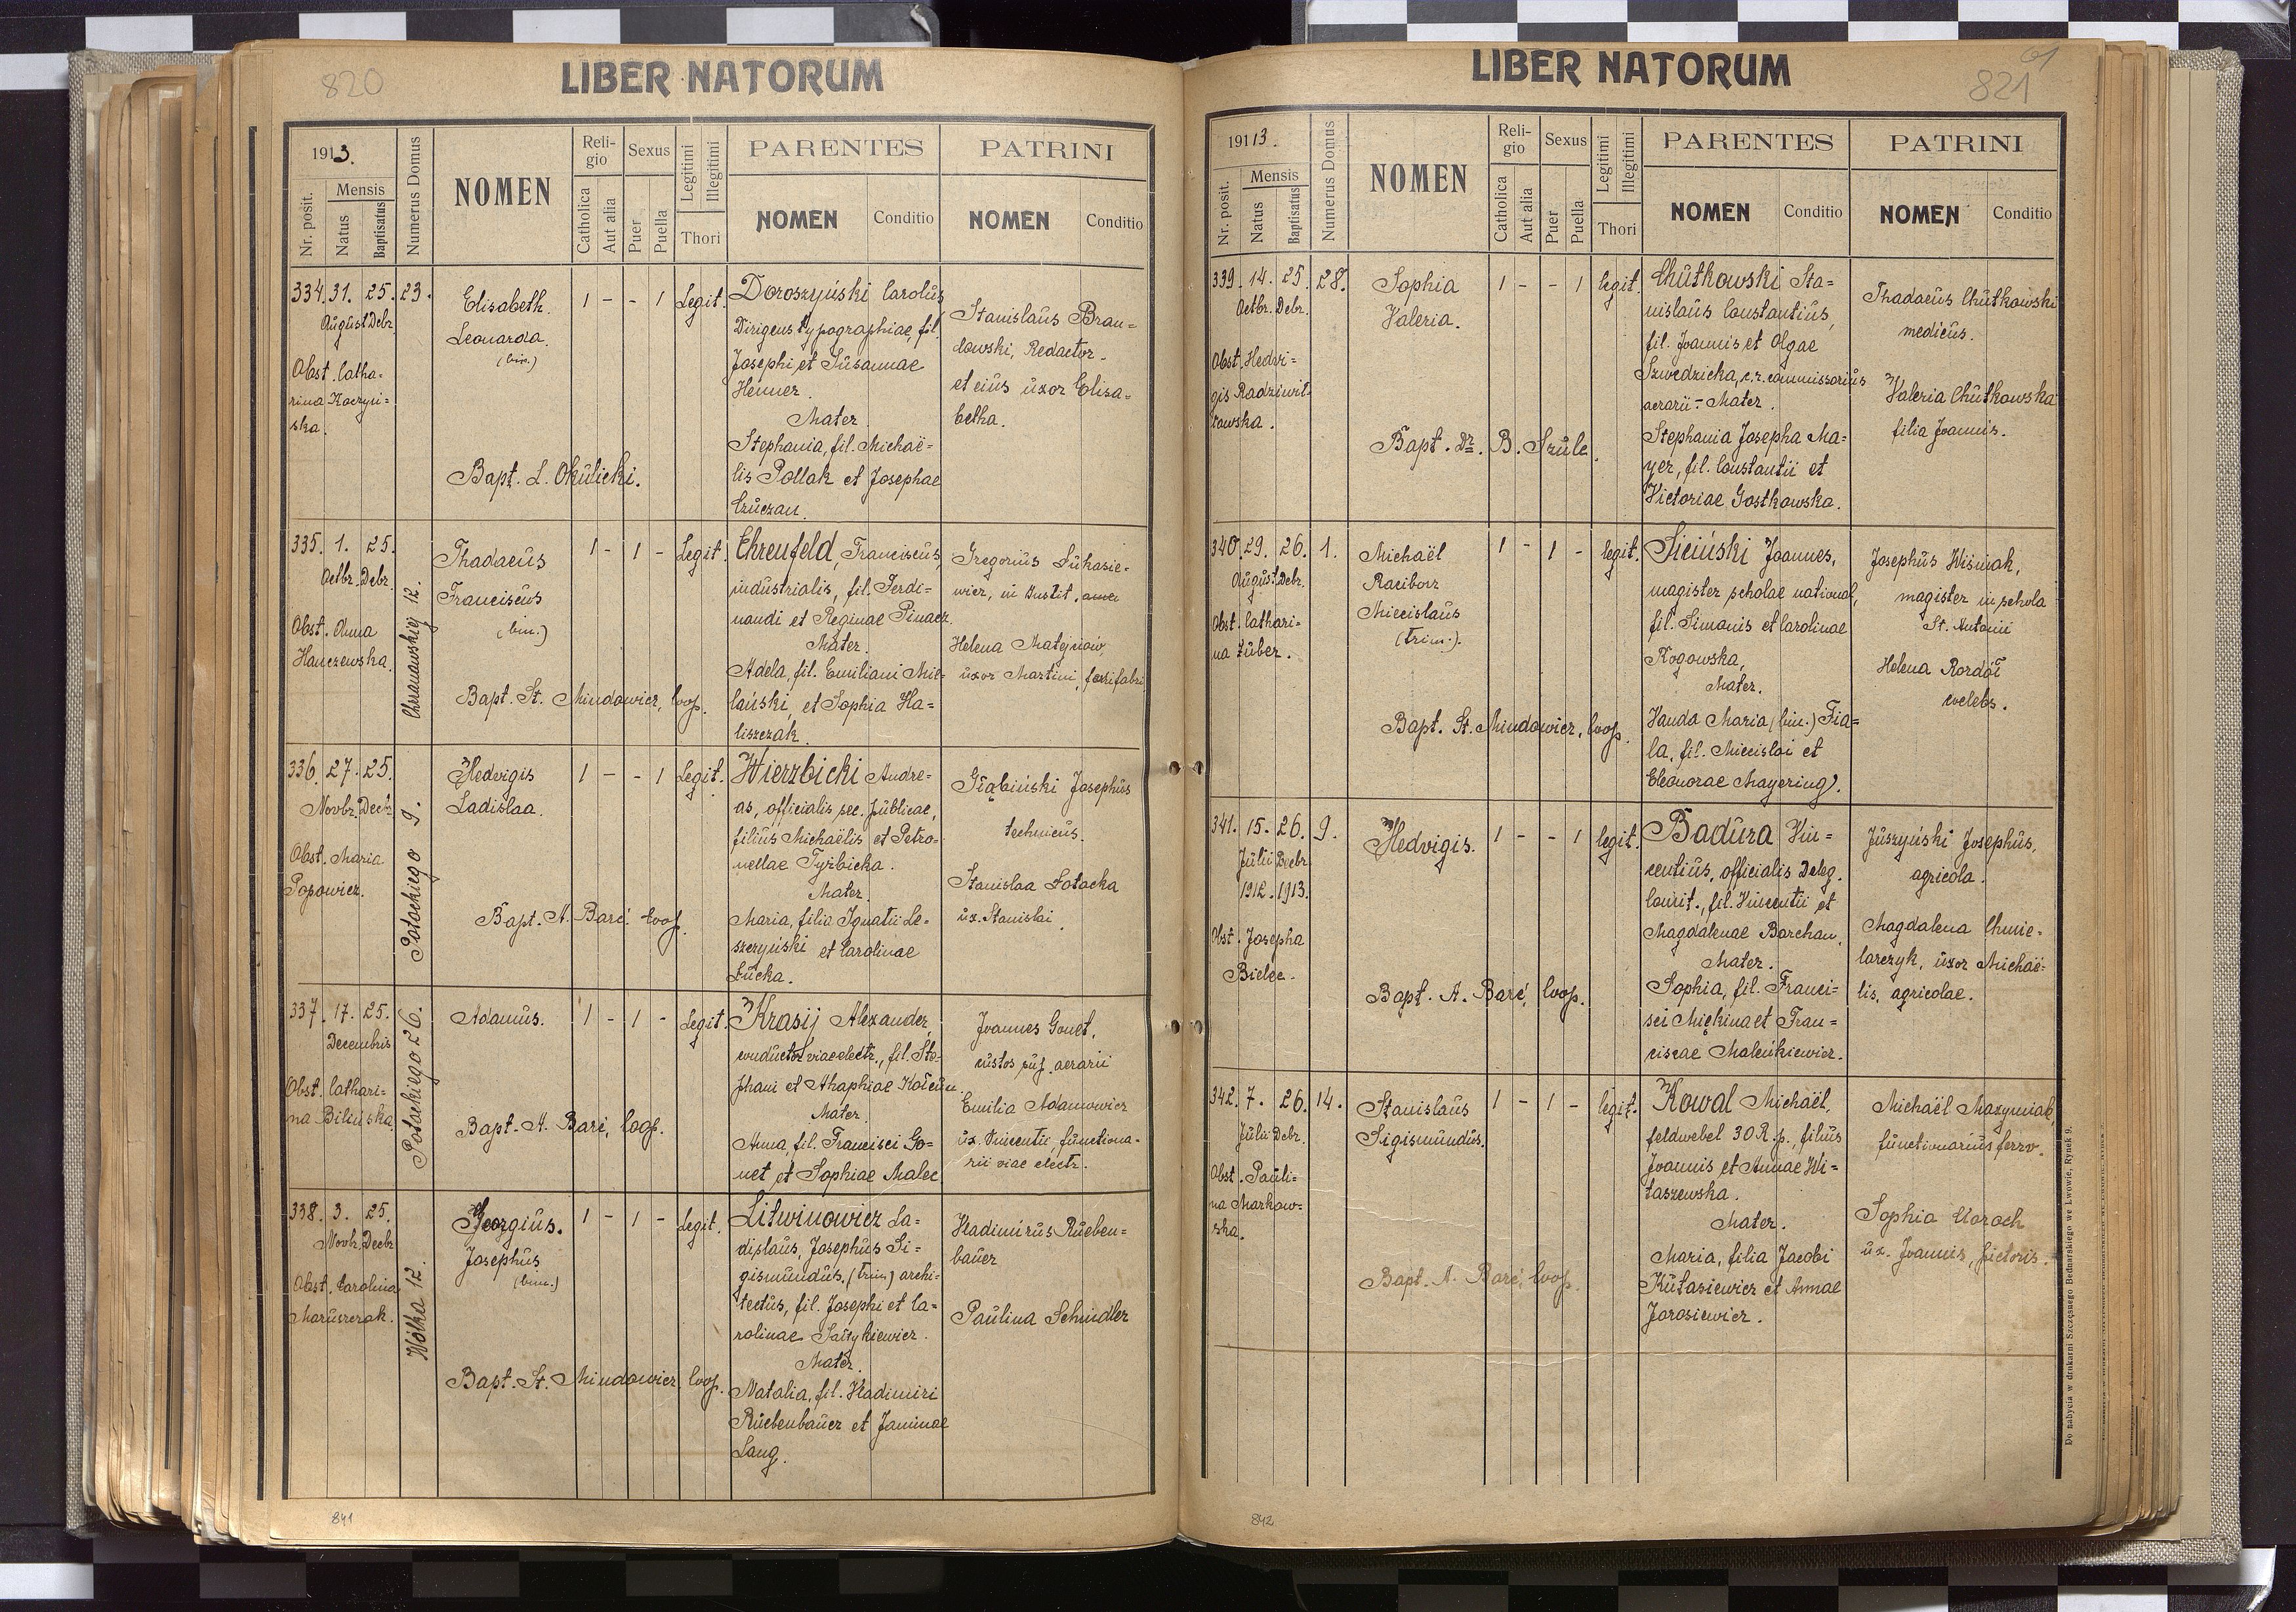 820
LIBER NATORUM
1913.
Nr. posit.
Mensis
Natus
Baptisatus
Numerus Domus
NOMEN
Religio
Catholica
Aut alia
Sexus
Puer
Puella
Legitimi
Illegitimi
Thori
PARENTES
NOMEN
Conditio
PATRINI
NOMEN
Conditio
334. 31. 25. 23.
August Debr.
Obst. Catha-
rina Kaczyń-
ska.
Elisabeth
Leonarda.
(bin.)
Bapt. L. Okulicki.
1 - - 1 Legit.
Doroszyński Carolus
Dirigens typographiae, fil.
Josephi et Susannae
Henner.
Mater
Stephania, fil. Michaë-
lis Pollak et Josephae
Czuczan.
Stanislaus Bran-
dowski, Redactor.
et eius uxor Elisa-
betha.
335. 1. 25.
Octbr. Debr.
Chrzanowskiej 12.
Obst. Anna
Hanczewska.
Thadaeus
Franciscus
(bin.)
Bapt. St. Mindowicz, Coop.
1 - 1 - Legit.
Ehrenfeld, Franciscus,
industrialis, fil. Ferdi-
nandi et Reginae Pinacz.
Mater.
Adela, fil. Emiliani Mie-
lański et Sophia Ha-
liszczak.
Gregorius Lukasie-
wicz,
Helena Matejnów,
uxor Martini, ferrifabri
336. 27. 25.
Novbr. Decbr.
Potockiego 9.
Obst. Maria
Popowicz.
Hedvigis
Ladislaa.
Bapt. A. Baré Coop.
1 - - 1 Legit.
Wierzbicki Andre-
as, officialis sec. publicae,
filius Michaëlis et Petro-
nellae Tyrbicka.
Mater
Maria, filia Ignatii Le-
szczyński et Carolinae
Łucka.
Głąbiński Josephus
technicus.
Stanislaa Łotacka
ux. Stanislai.
337. 17. 25.
Decembris
Potockiego 26.
Obst. Cathari-
na Bilińska.
Adamus.
Bapt. A. Baré, Coop.
1 - 1 - Legit.
Krasij Alexander,
conductor viae electr., fil. Ste-
phani et Ahaphiae Kołcun.
Mater
Anna, fil. Francisci Go-
net et Sophiae Malec
Joannes Gonet,
custos aerarii
Emilia Adamowicz
ux. Vincentii, functiona-
rii viae electr.
338. 3. 25.
Novbr. Decbr.
Wólka 12.
Obst. Carolina
Maruszczak.
Georgius.
Josephus
(bin.)
Bapt. St. Mindowicz, Coop.
1 - 1 - Legit.
Litwinowicz La-
dislaus, Josephus Si-
gismundus, (trin) archi-
tectus, fil. Josephi et Ca-
rolinae
Mater.
Natalia, fil. Wladimiri
Rüebenbauer et Janinae
Lang.
Wladimirus Rüeben-
bauer
Paulina Schindler
841
821
LIBER NATORUM
191 13.
Nr. posit.
Mensis
Natus
Baptisatus
Numerus Domus
NOMEN
Religio
Catholica
Aut alia
Sexus
Puer
Puella
Legitimi
Illegitimi
Thori
PARENTES
NOMEN
Conditio
PATRINI
NOMEN
Conditio
339. 14. 25. 28.
Octbr. Debr.
Obst. Hedvi-
gis Radziwił-
łowska.
Sophia
Valeria.
Bapt. Dr. B. Szulc.
1 - - 1 legit.
Chutkowski Sta-
nislaus Constantius,
fil. Joannis et Olgae
Szwedzicka, c.r. commissarius
aerarii - Mater.
Stephania Josepha Ma-
yer, fil. Constantii et
Victoriae Gostkowska.
Thadaeus Chutkowski
medicus.
Valeria Chutkowska
filia Joannis.
340. 29. 26. 1.
August Debr.
Obst. Cathari-
na Zuber.
Michaël
Racibor
Miecislaus
(trin.).
Bapt. St. Mindowicz, Coop.
1 - 1 - legit.
Siciński Joannes,
magister scholae national,
fil. Simonis et Carolinae
Rogowska,
Mater.
Vanda Maria (bin.) Fia-
la, fil. Miecislai et
Eleonorae Mayering).
Josephus Wiśniak,
magister in schola
St. Antonii
Helena Rordół
coelebs.
341. 15. 26. 9.
Julii Decbr.
1912. 1913.
Obst. Josepha
Bielec.
Hedvigis.
Bapt. A. Baré, Coop.
1 - - 1 legit.
Badura Vin-
centius, officialis Deleg.
fil. Vincentii et
Magdalenae Barchan.
Mater.
Sophia, fil. Franci-
sci Miękina et Fran-
ciscae Maleńkiewicz.
Juszyński Josephus,
agricola.
Magdalena Chmie-
larczyk, uxor Michaë-
lis, agricolae.
342. 7. 26. 14.
Julii Debr.
Obst. Pauli-
na Markow-
ska.
Stanislaus
Sigismundus.
Bapt. A. Baré, Coop.
1 - 1 - legit.
Kowal Michaël,
feldwebel 30 R.p., filius
Joannis et Annae Wi-
taszewska.
Mater.
Maria, filia Jacobi
Kutasiewicz et Annae
Jarosiewicz.
Michaël Mazyniak,
functionarius ferrv.
Sophia Woroch
ux. Joannis, pictoris.
Do nabycia w drukarni Szczęsnego Bednarskiego we Lwowie, Rynek 9.
842